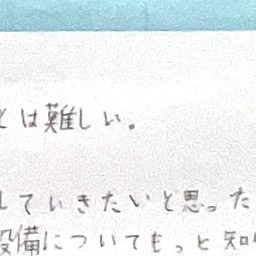 とは難しい。
していきたいと思った
設備についてもっと知